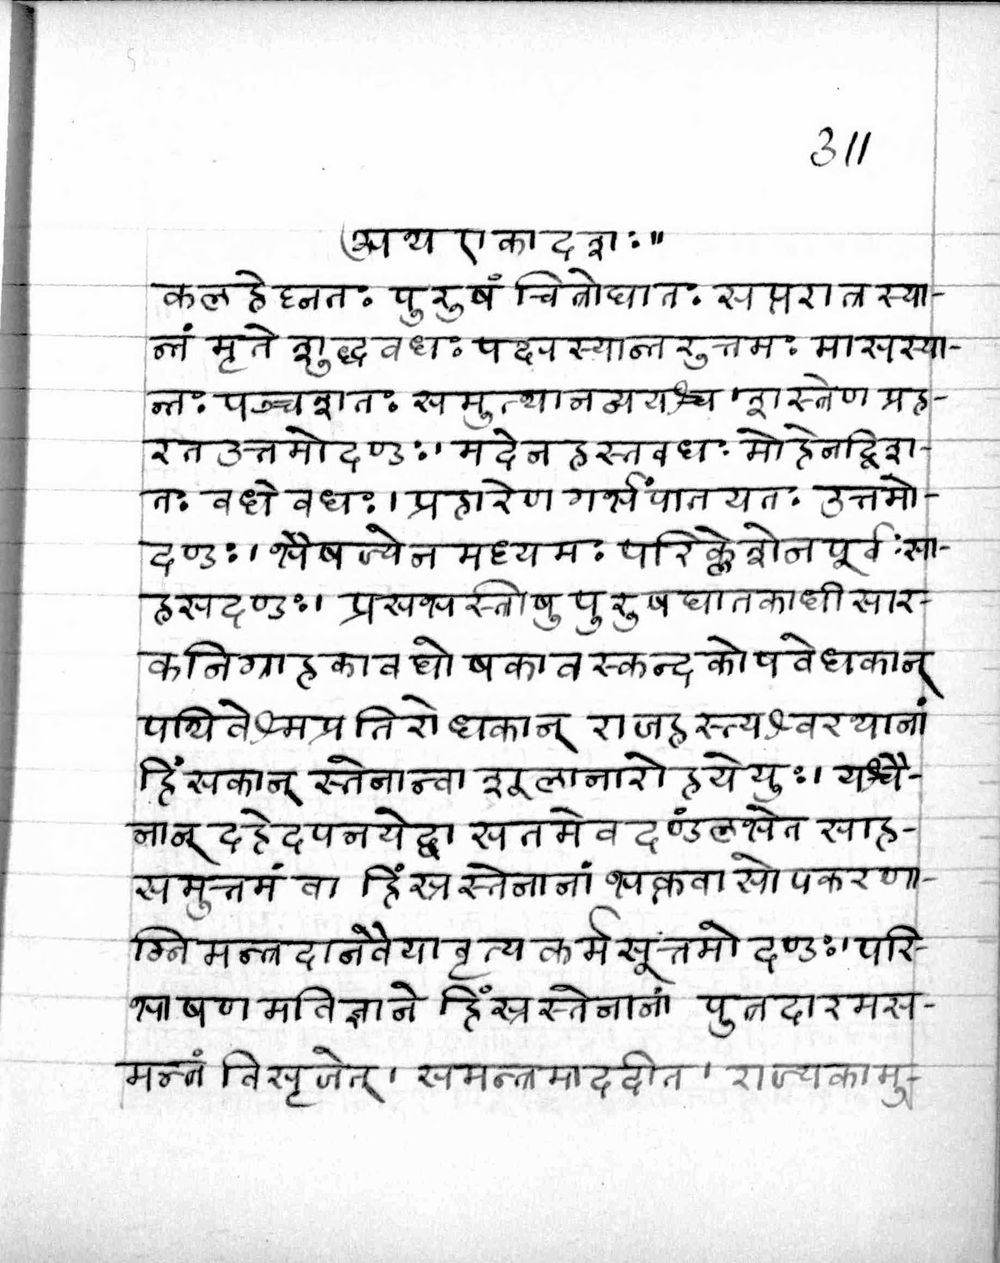 311
अथ एकादशः"
कलहेघ्नतः पुरुषं चित्रोघातः सप्तरात्रस्या-
न्तं मृते शुद्धवधः पक्षस्यान्तरुत्तमः मासस्या-
न्तः पञ्चशतः समुत्थानव्ययश्च।शस्त्रेण प्रह-
रत उत्तमोदण्डः।मदेन हस्तवधः मोहेनद्विश-
तः वधे वधः।प्रहारेण गर्भंपातयतः उत्तमो-
दण्डः।भैषज्येन मध्यमः परिक्लेशेन पूर्वःसा-
हसदण्डः। प्रसभस्त्रीषु पुरुषघातकाभीसार-
कनिग्राहकावघोषकावस्कन्दकोपवेधकान्
पथिवेश्मप्रतिरोधकान् राजहस्त्यश्वरथानां
हिंसकान् स्तेनान्वा शूलानारोहयेयुः। यश्चै-
नान् दहेदपनयेद्वा सतमेव दण्डंलभेत साह-
समुत्तमं वा हिंस्रस्तेनानां भक्तवासोपकरणा-
ग्निमन्त्रदानेवैयावृत्यकर्मसूत्तमोदण्डः।परि-
भाषणमविज्ञाने हिंस्रस्तेनानां पुत्रदारमस-
मन्त्रं विसृजेत्। समन्त्रमाददीत। राज्यकामु-